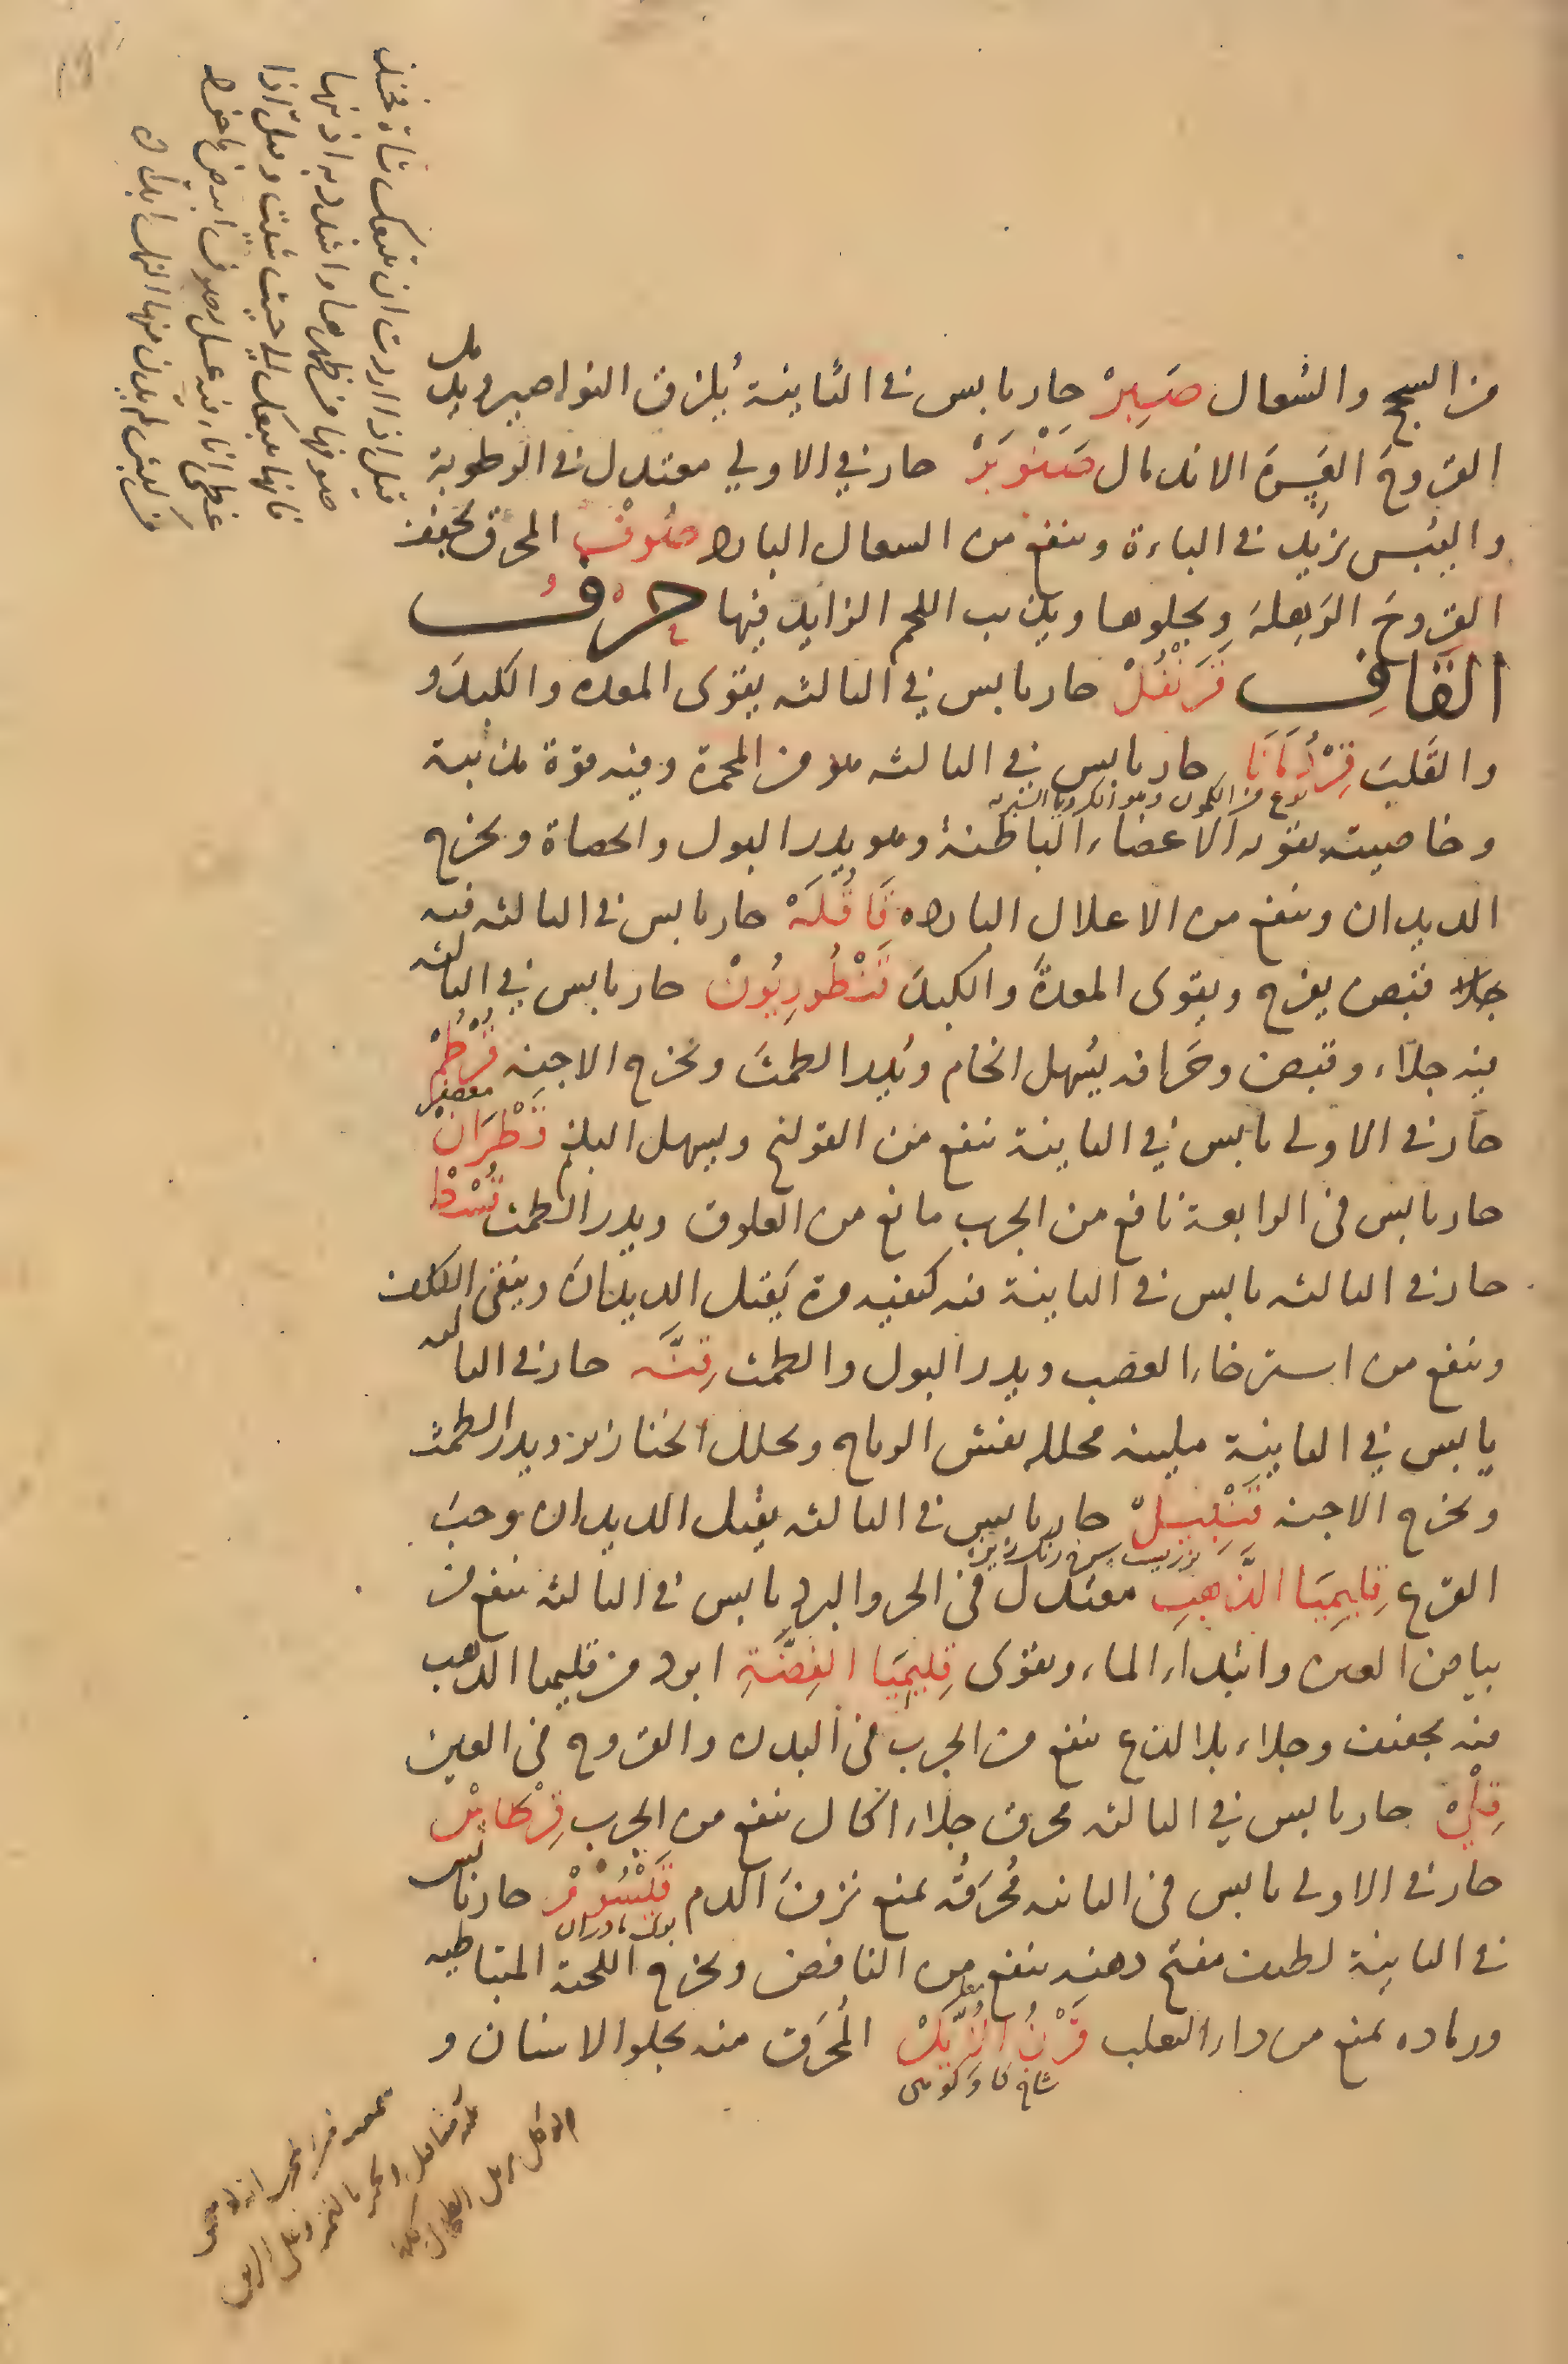 من السحج والسعال صَبِرْ حار يابس في الثانية يُلزق النواصير ويدمل
القروحَ العَسِرَة الاندمال صَنَوْبَرْ حار في الاولي معتدل في الرطوبة
واليُبس يزيد في الباءة وينفع من السعال البارد صُوفْ المحرق يجفف
القروحَ الرَهِلةَ ويجلوها ويذيب اللحم الزايد فيها حرف
القاف قَرَنْفُلْ حار يابس في الثالثه يقوى المعده والكبدَ و
والقَلبَ قِرْدُمَانَا حار يابس في الثالثه
نوع من الكمون وهو الكرويا البرية
وخاصيته يقوى الاعضاء الباطنة وهو يدر البول والحصاة ويخرج
الديدان وينفع من الاعلال البارده قَاقُلَهْ حار يابس في الثالثه فيه
جلاء قبض يفرح ويقوى المعدةَ والكبدَ قَنْطُورِيُونْ حار يابس في الثالثه
فيه جلاء وقبض وحَرافه يُسهل الخام ويُدر الطمثَ ويخرج الاجِنه قُرْطُمْ
معصفر
حار في الاولى يابس في الثانية ينفع من القولنج ويسهل البلغم قَطْرَانْ
حار يابس في الرابعة نافع من الجرب مانع من العلوق ويدر الطمث قُسْط
حار في الثالثه يابس في الثانية فيه كيفيه مرة يَقتل الديدانَ وينقى الكلف
وينفع من استرخاء العصب ويدر البول والطمث قِنَّه حار في الثالثه
يابس في الثانية ملينه محلله يفش الرياح ويحلل الخنازير ويدر الطمث
ويخرج الاجنه قَنْبِيلْ حار يابس في الثالثه يقتل الديدان وحبَ
القرع قِلِيمِيَا الذَّهبِ معتدل في الحر والبرد يابس في الثالثه ينفع من
بياض العين وابتداء الماء ويقوى قِلِيمِيَا الفِضَّةِ ابرد من قليميا الذهب
فيه تجفيف وجلاء بلا لذع ينفع من الجرب في البدن والقروح في العين
قِلْيْ حار يابس في الثالثه محرق جلاء اكال ينفع من الجرب قِرْطَاسْ
حار في الاولى يابس في الثانيه مُحرَقُه يمنع نزفَ الدم قَيْسُوْمْ حار يابس
في الثانِية لطيف مفتح دهنه ينفع من النافض ويخرج اللحية المتباطيه
ورماده يمنع من داء الثعلب قَرْنُ الاُيَّلْ المُحَرق منه يجلو الاسنان و
شاخ كاو كوهى
قيل اذا اردت ان تتبعك شاة فخذ
صوفها من ظهرها واشدد به اذنها
فانها تتبعك الى حيث شئت وقيل اذا
غطى اناء فيه عسل بصوف ابيض
من كبش لم يدن منها النمل ابدا